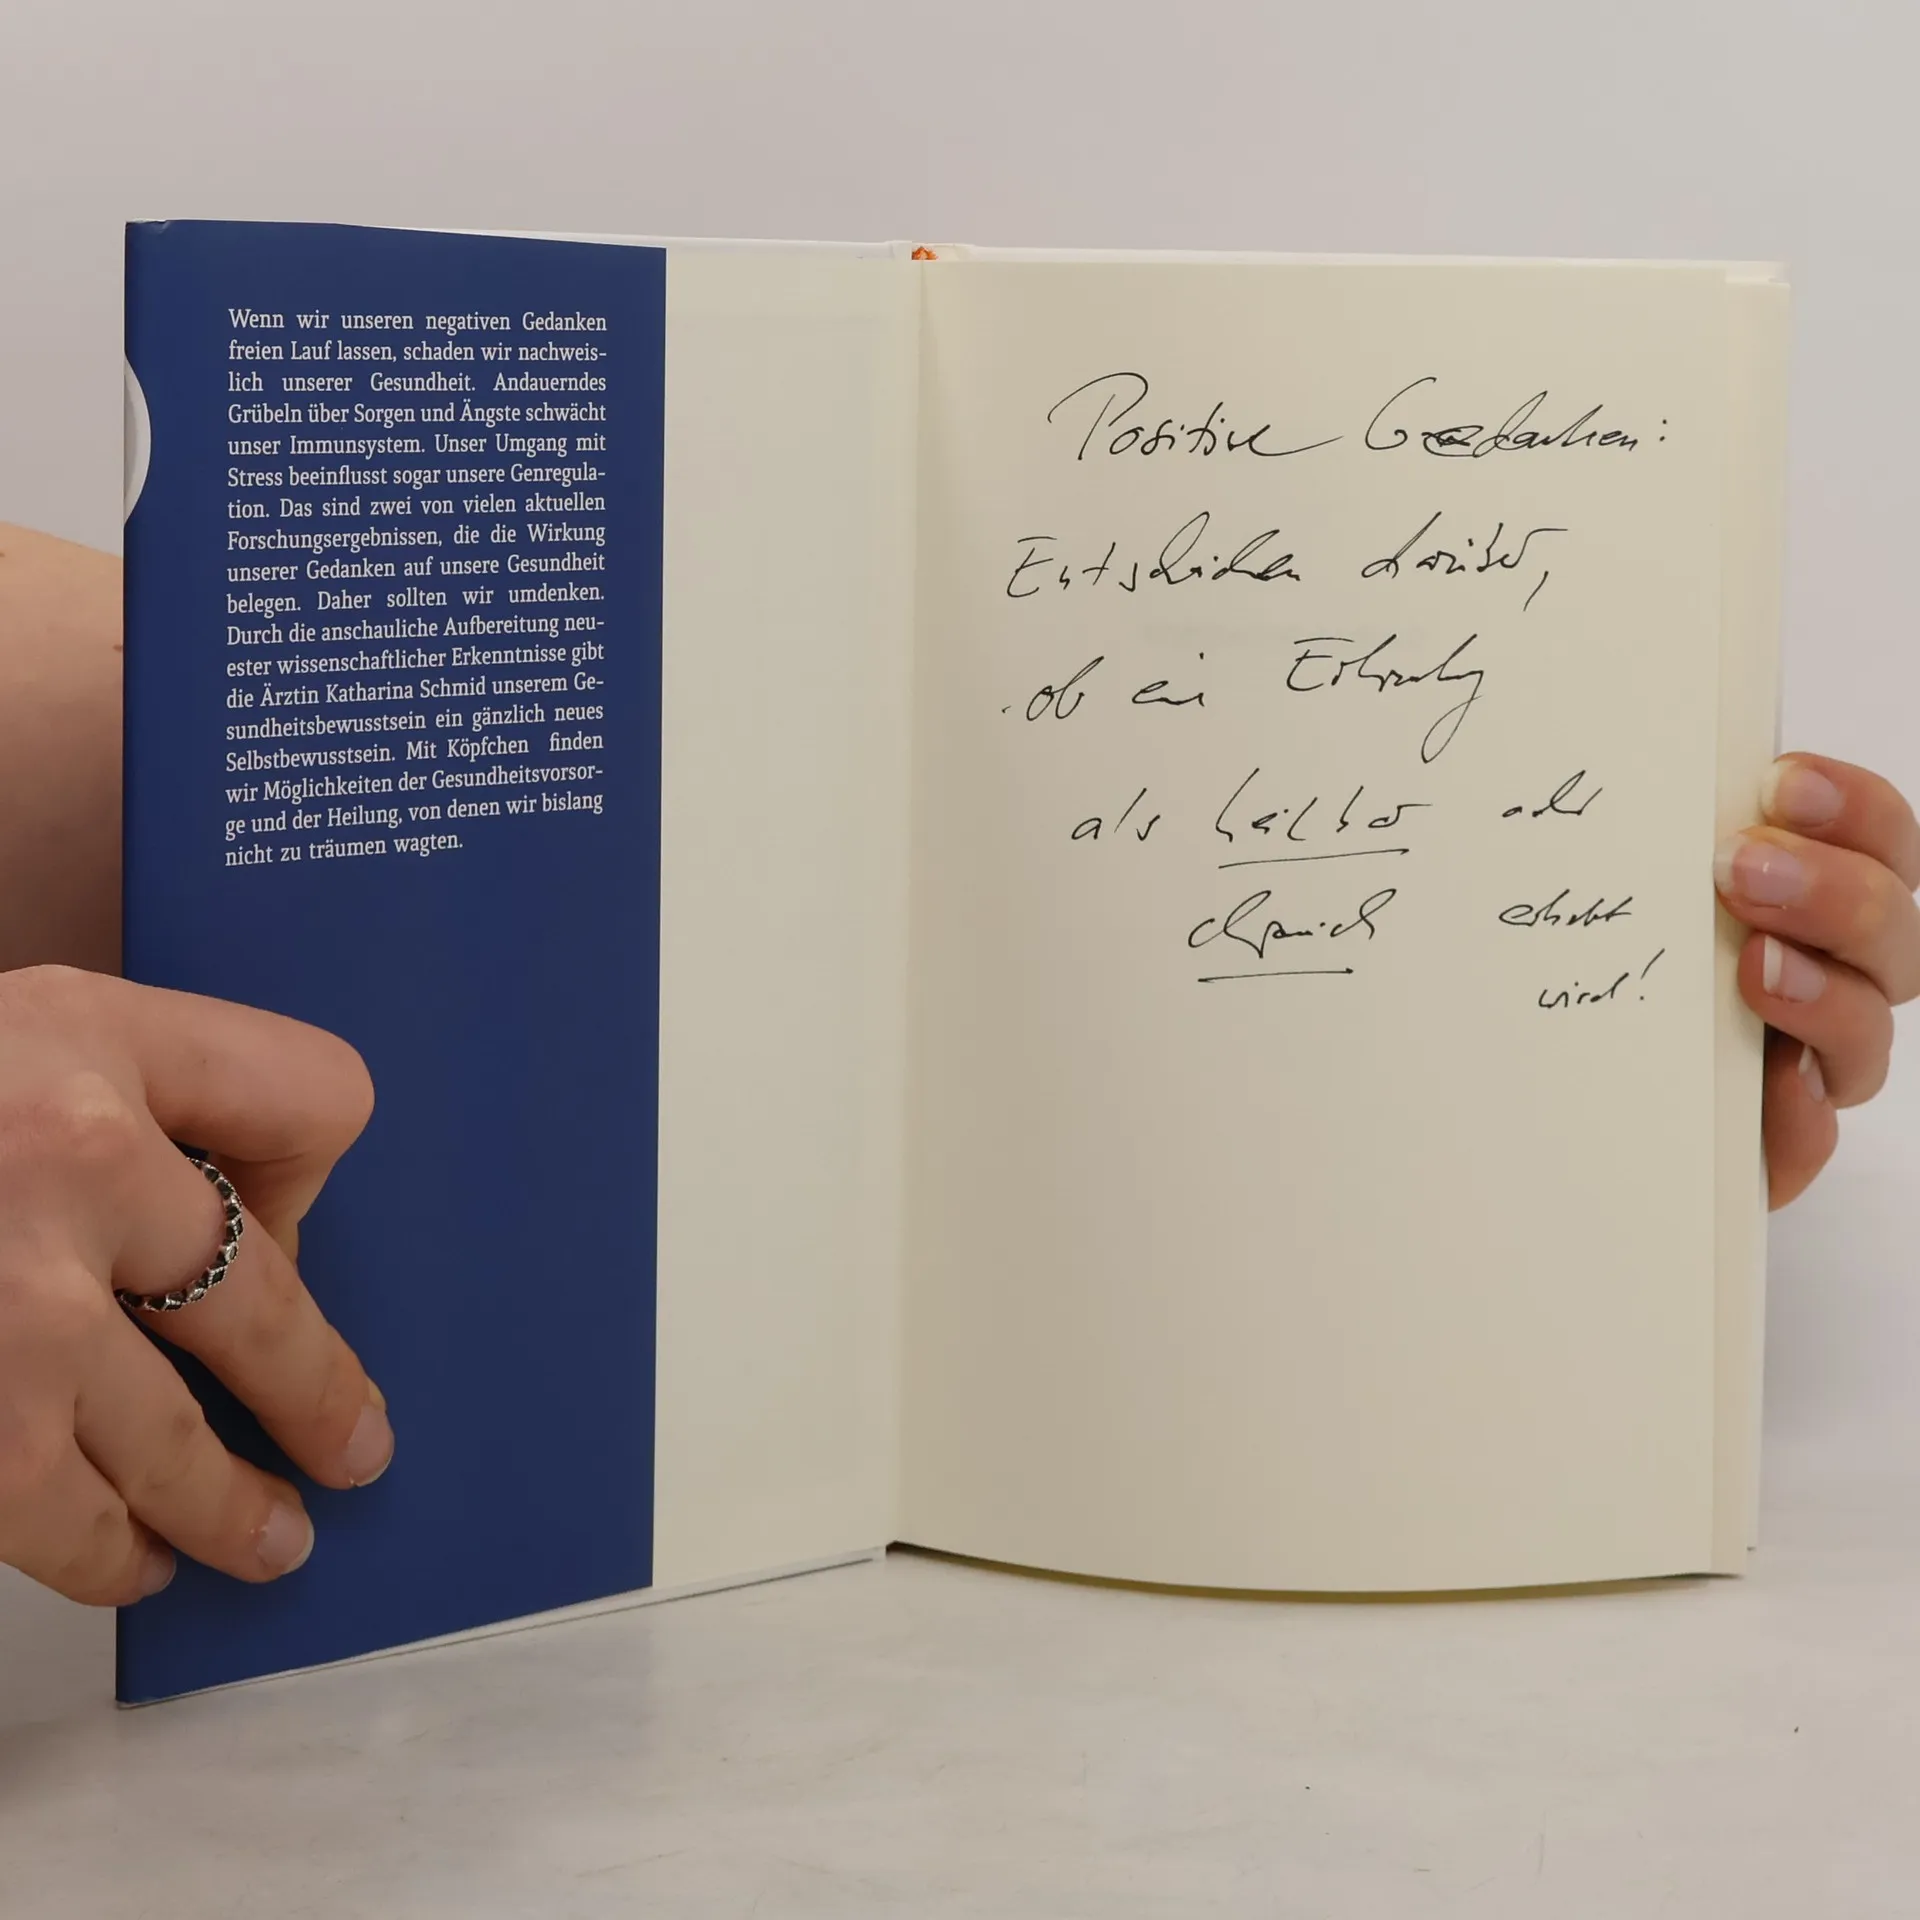 Wenn wir unseren negativen Gedanken
freien Lauf lassen, schaden wir nachweis-
lich unserer Gesundheit. Andauerndes
Grübeln über Sorgen und Ängste schwächt
unser Immunsystem. Unser Umgang mit
Stress beeinflusst sogar unsere Genregula-
tion. Das sind zwei von vielen aktuellen
Forschungsergebnissen, die die Wirkung
unserer Gedanken auf unsere Gesundheit
belegen. Daher sollten wir umdenken.
Durch die anschauliche Aufbereitung neu-
ester wissenschaftlicher Erkenntnisse gibt
die Ärztin Katharina Schmid unserem Ge-
sundheitsbewusstsein ein gänzlich neues
Selbstbewusstsein. Mit Köpfchen finden
wir Möglichkeiten der Gesundheitsvorsor-
ge und der Heilung, von denen wir bislang
nicht zu träumen wagten.
Positive Gedanken:
Entscheiden darüber,
ob ein
als heilbar oder
chronisch
wird!